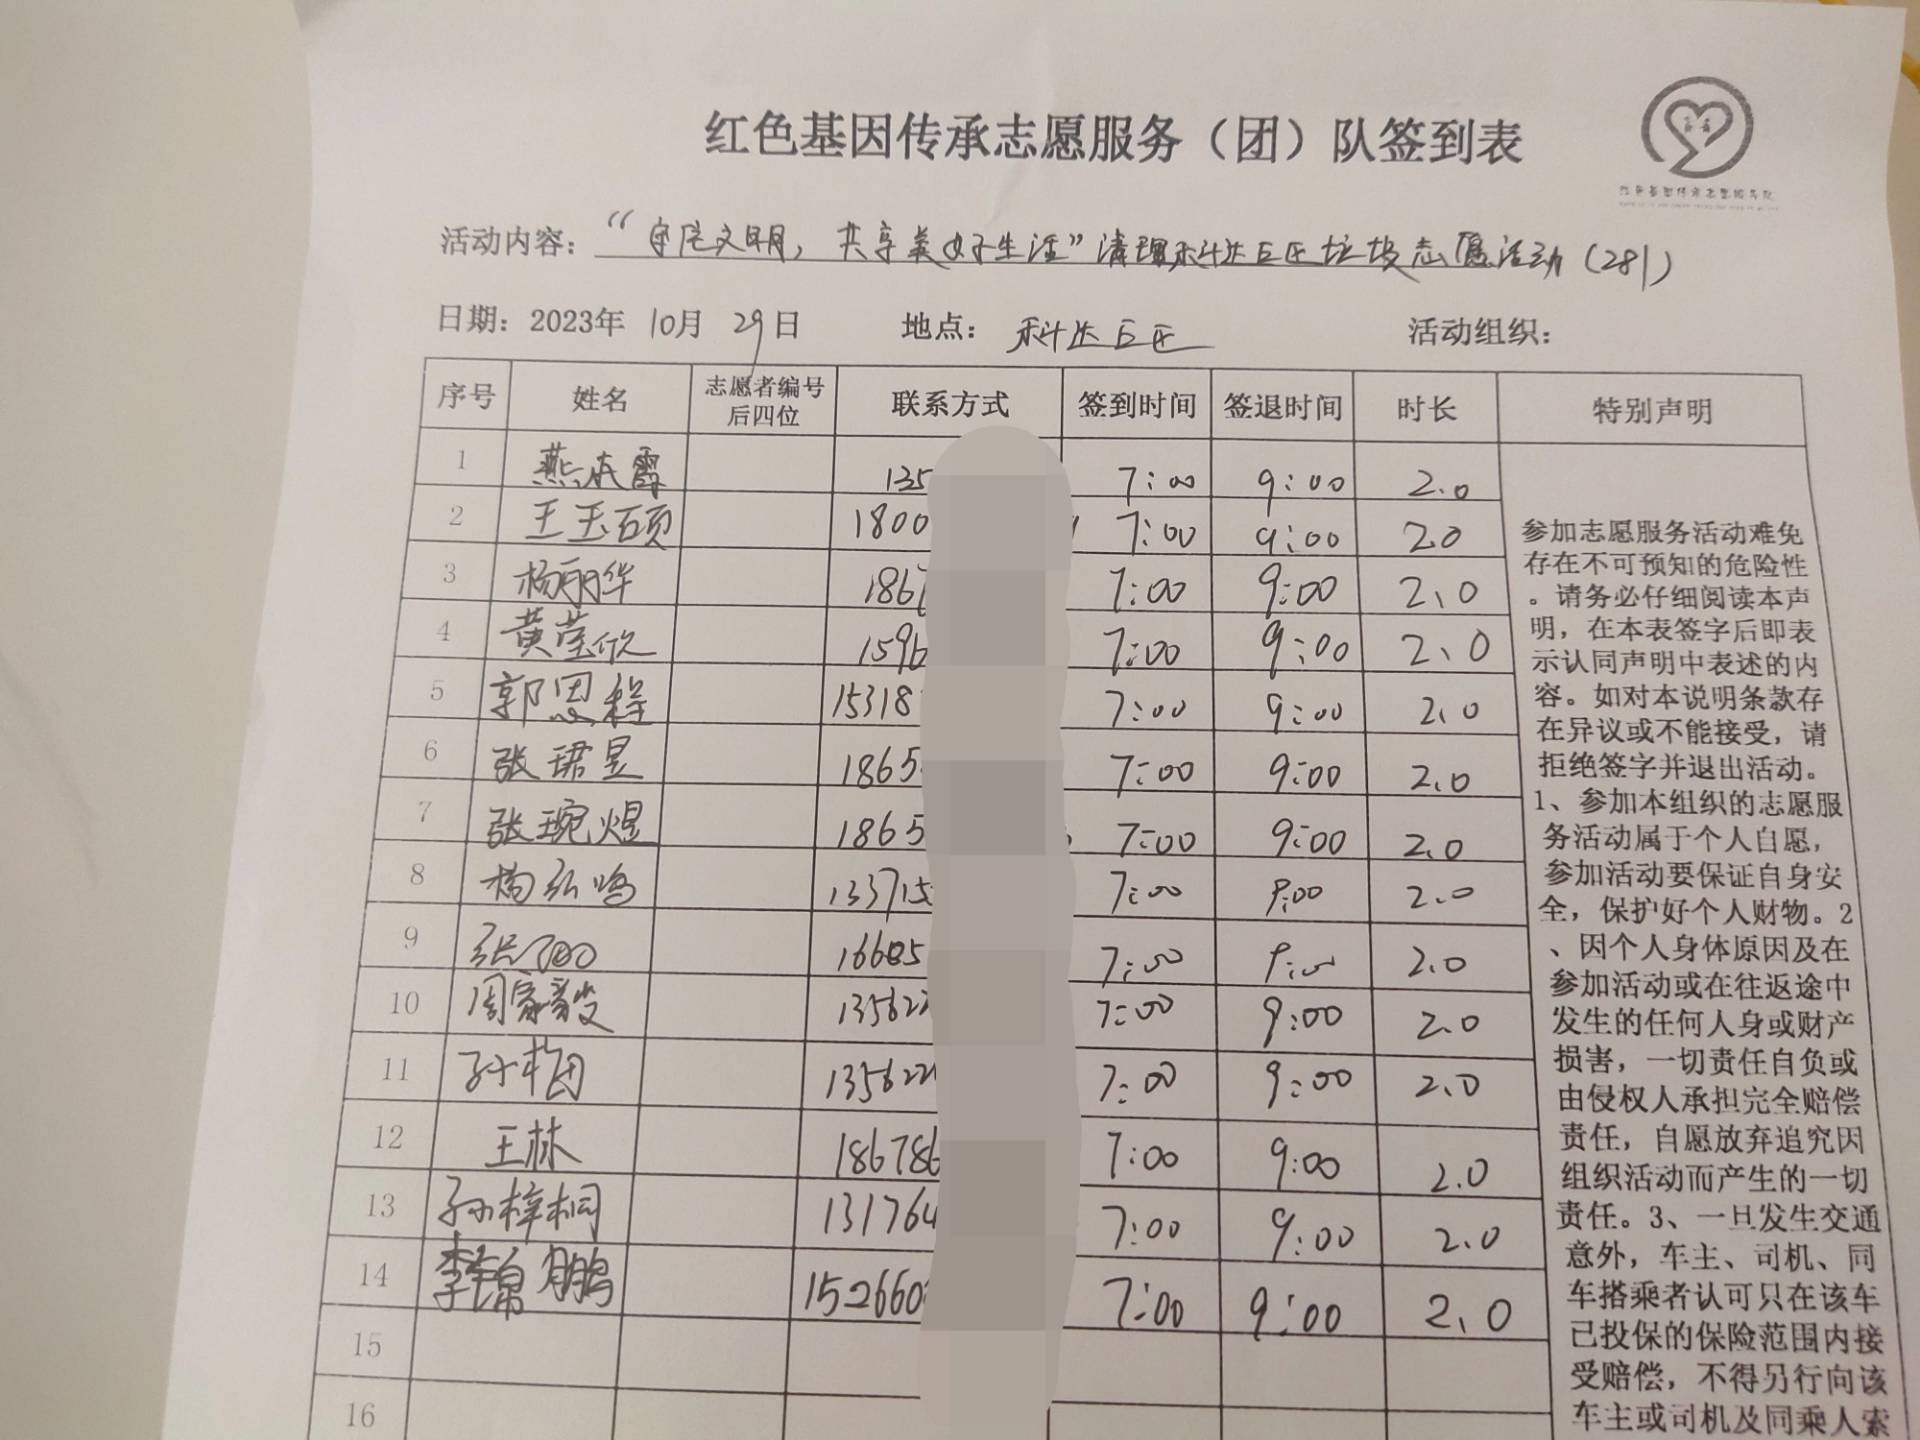 红色基因传承志愿服务（团）队签到表
活动内容：“守护文明，共享美好生活”清理科达巨匠垃圾志愿活动（281）
日期：2023年 10月 29日 地点：科达巨匠 活动组织：
序号 姓名 志愿者编号后四位 联系方式 签到时间 签退时间 时长 特别声明
1 135 7:00 9:00 2.0
2 王玉硕 1800 7:00 9:00 2.0
3 杨丽华 186 7:00 9:00 2、0
4 黄莹欣 1596 7:00 9:00 2、0
5 郭恩程 15318 7:00 9:00 2、0
6 张珺昱 1865 7:00 9:00 2.0
7 张琬煜 1865 7:00 9:00 2.0
8 杨弘鸣 13371 7:00 9:00 2.0
9 张 16605 7:00 9:00 2.0
10 周家毅 13562 7:00 9:00 2.0
11 孙 135622 7:00 9:00 2.0
12 王林 186786 7:00 9:00 2.0
13 孙梓桐 131764 7:00 9:00 2.0
14 李锦鹏 152660 7:00 9:00 2、0
15
16
参加志愿服务活动难免
存在不可预知的危险性
。请务必仔细阅读本声
明，在本表签字后即表
示认同声明中表述的内
容。如对本说明条款存
在异议或不能接受，请
拒绝签字并退出活动。
1、参加本组织的志愿服
务活动属于个人自愿，
参加活动要保证自身安
全，保护好个人财物。2
、因个人身体原因及在
参加活动或在往返途中
发生的任何人身或财产
损害，一切责任自负或
由侵权人承担完全赔偿
责任，自愿放弃追究因
组织活动而产生的一切
责任。3、一旦发生交通
意外，车主、司机、同
车搭乘者认可只在该车
已投保的保险范围内接
受赔偿，不得另行向该
车主或司机及同乘人索